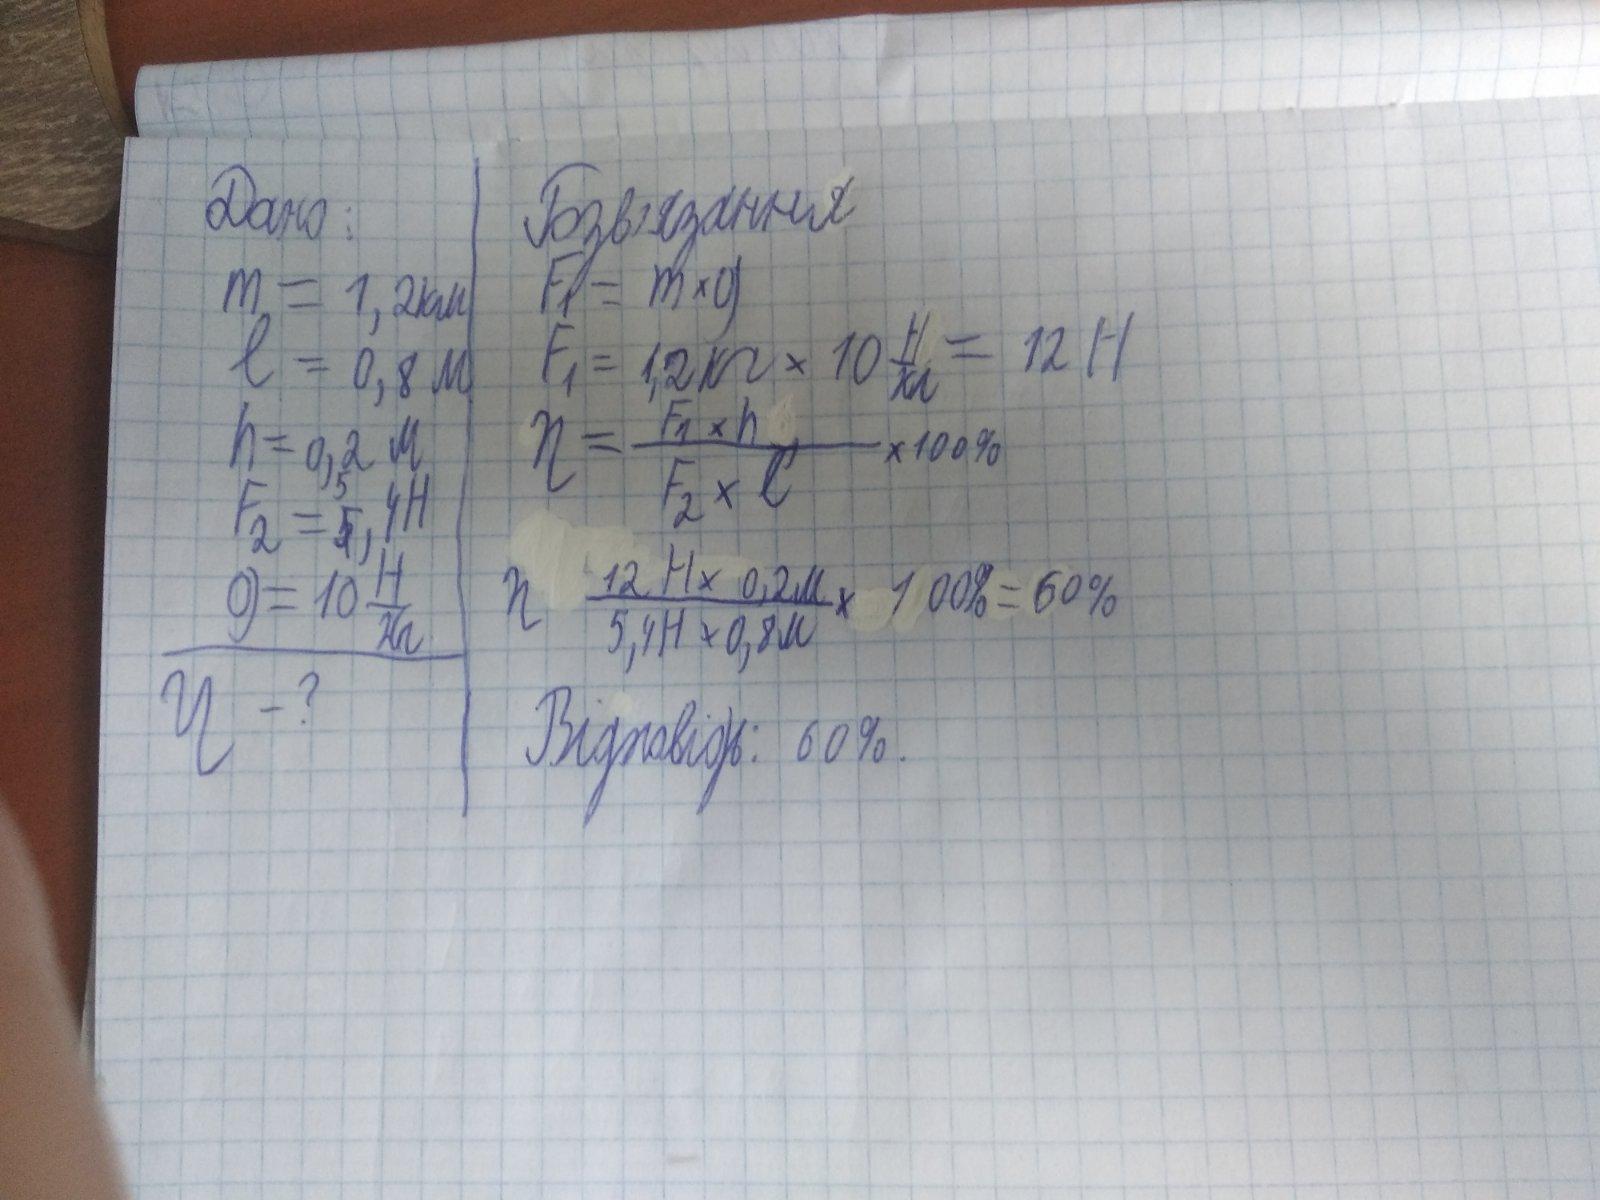 Дано:
m = 1,2кг
l = 0,8 м
h = 0,2 м
F2 = 5,4Н
g = 10 Н/кг
η - ?
Розв'язання
F1 = m×g
F1 = 1,2кг × 10 Н/кг = 12 Н
η = F1 × h / F2 × l × 100%
η 12 Н × 0,2м / 5,4Н × 0,8м × 100% = 60%
Відповідь: 60%.